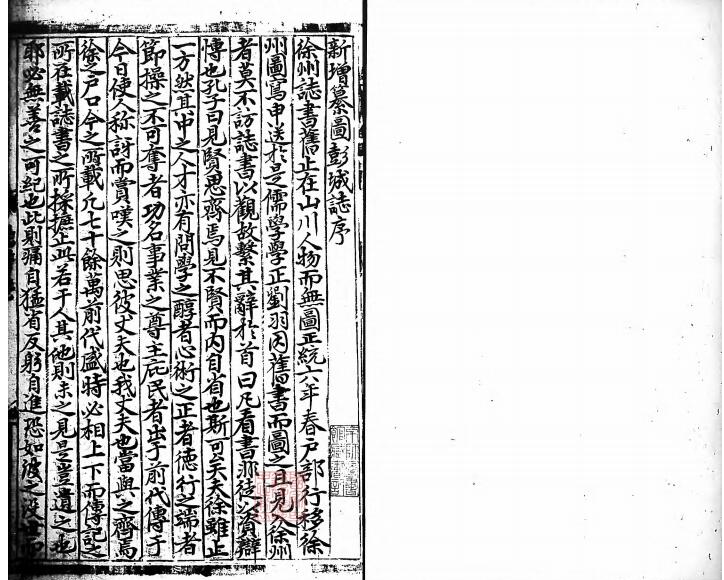 新增纂圖彭城誌序
徐州誌書舊止在山川人物而無圖正統六年春戶部行移徐
州圖寫申送於是儒學學正劉羽因舊書而圖之且見人徐州
者莫不訪誌書以觀故繫其辭於首曰凡看書非徒以資辯
博也孔子曰見賢思齊焉見不賢而內自省也斯可矣夫徐雖止
一方然其中之人才亦有問學之醇者心術之正者德行之端者
節操之不可奪者功名事業之尊主庇民者出于前代傳于
今日使人称訝而賞嘆之則思彼丈夫也我丈夫也當與之齊焉
徐之戶口今之所載凡七十餘萬前代盛時必相上下而傳記之
所在載誌書之所採摭止此若干人其他則未之見是豈遺之也
耶必無善之可紀也此則彊自猛省反躬自進恐如彼之沒世而